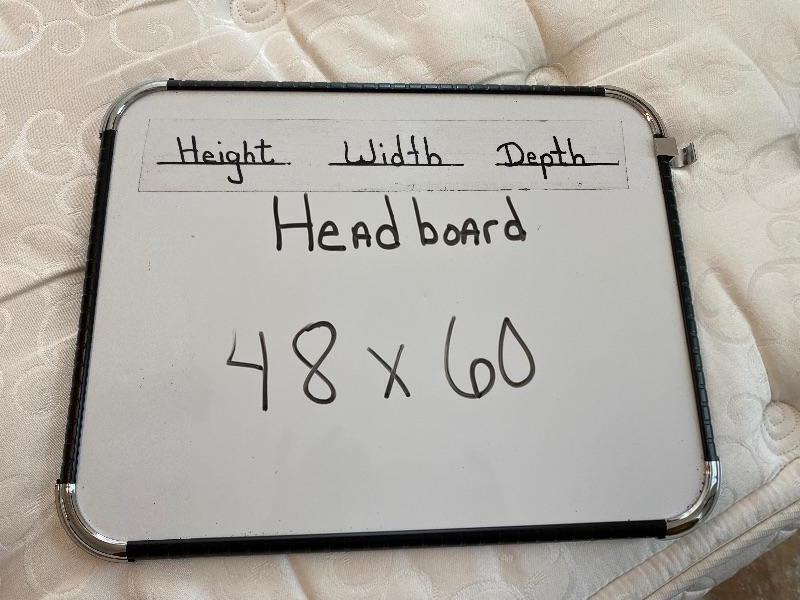 Height Width Depth
Headboard
48 x 60